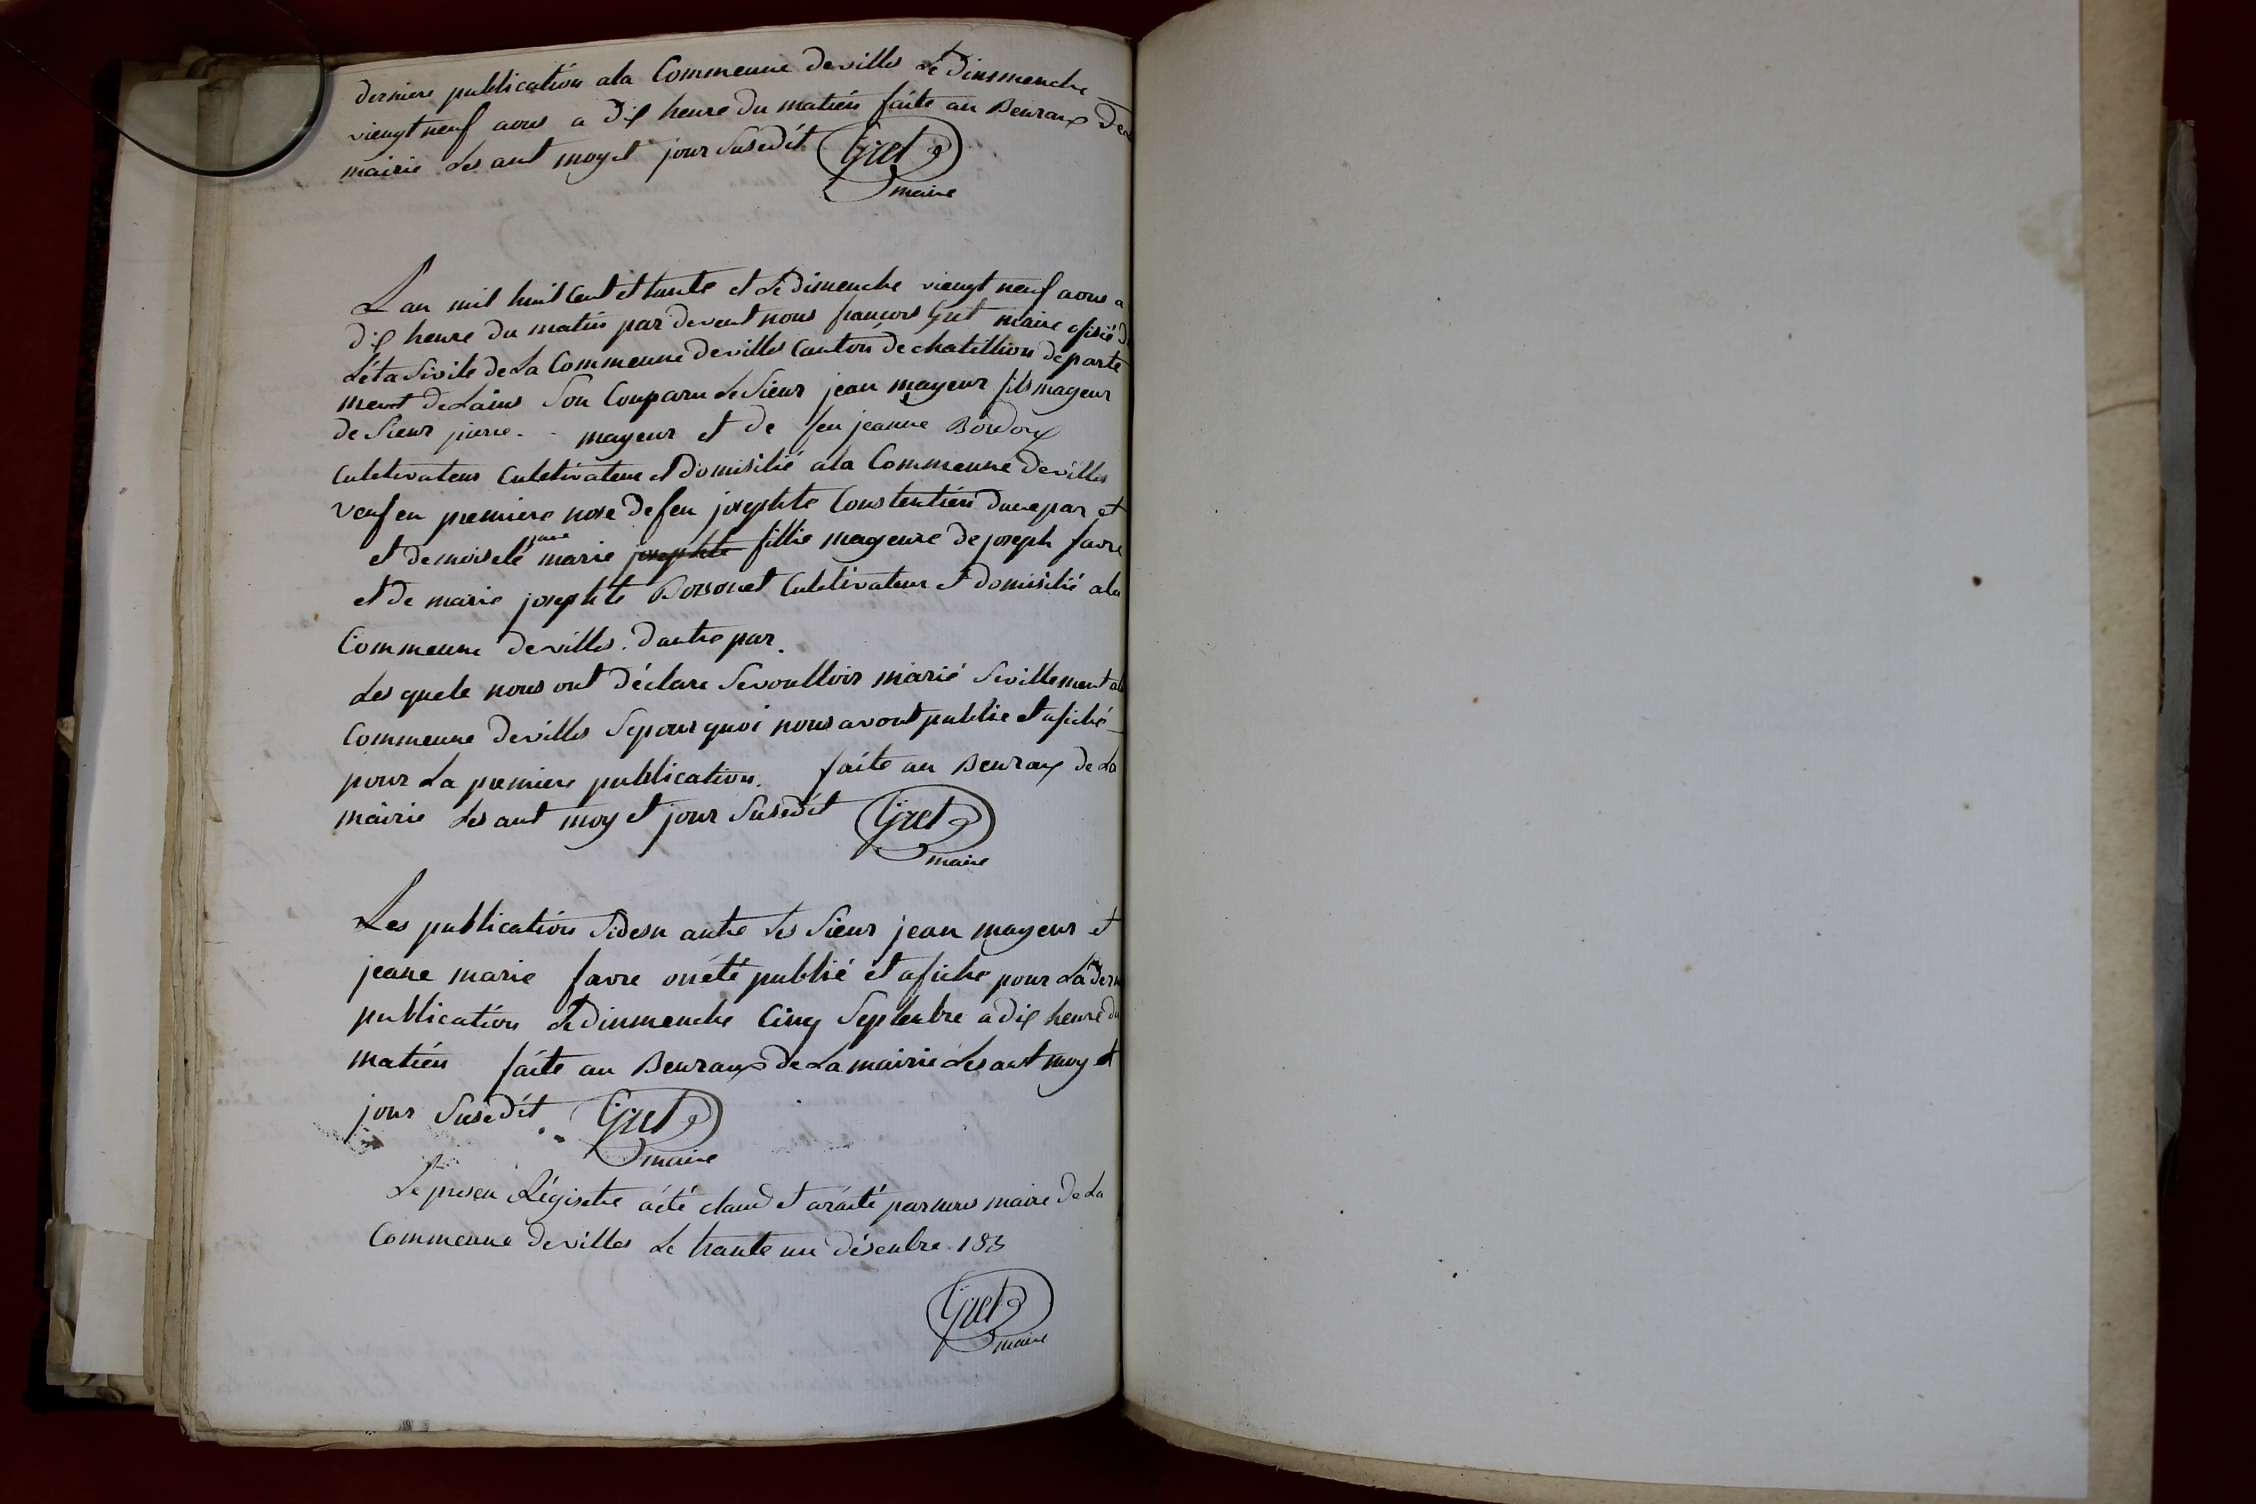 derniere publication ala Commeune de villes Le dinmenche
viengt neuf aous a dix heure du matién faite au Beuraux De
mairie Les ant moy et jour Susedét Gret
maire
Lan mil huil Cent et trante et Le dimenche viengt neuf aous a
dix heure du matin par devent nous françois Gret maire ofisié d
Léta Sivile de La Commeune de villes Canton de chatillion départe
ment de Lains Son Comparu Le Sieur jean mayeur fils mageur
de Sieur pierre mayeur et de feu jeanne Bordoux
Culetivateur Culetivateur et domisilié ala Commeune de villes
veuf en premiere nose de feu josephte Constentién dune par et
et demoiselé jane marie josephte fillie mageure de joseph favre
et de marie josephte Borsonet Culetivateur et domisilié ala
Commeune de villes. dautre par.
Les quele nous ont déclare Sevoulloir marié Sivillement ala
Commeune de villes Sepour quoi nous avont publie et afiché
pour La premiere publication. faite au Beuraux de La
mairie Les ant moy et jour Susedét Gret
maire
Les publication Sidesu antre Les Sieur jean mayeur et
jeane marie favre on été publié et afiche pour La dern
publication Le dinmenche Cinq Septenbre a dix heure du
matién faite au Beuraux de La mairie Les ant moy et
jour Susedét Gret
maire
Le presen Régistre aété claud et araité par nous maire de La
Commeune de villes Le trante un désenbre 183
Gret
maire